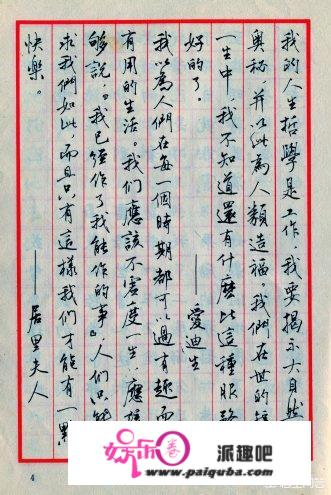 我的人生哲學是工作,我要揭示大自然
奧秘,并以此為人類造福。我們在世的短
一生中,我不知道還有什麽比這種服務
好的了。
——愛迪生
我以為人們在每一個時期都可以過有趣而
有用的生活。我们應該不度一生,應該
够說,『我已經作了我能作的事』,人们只能
求我們如此,而且只有這樣我們才能有一點
快樂。
——居里夫人
4
娱乐圈
派趣吧
www.paiquba.com